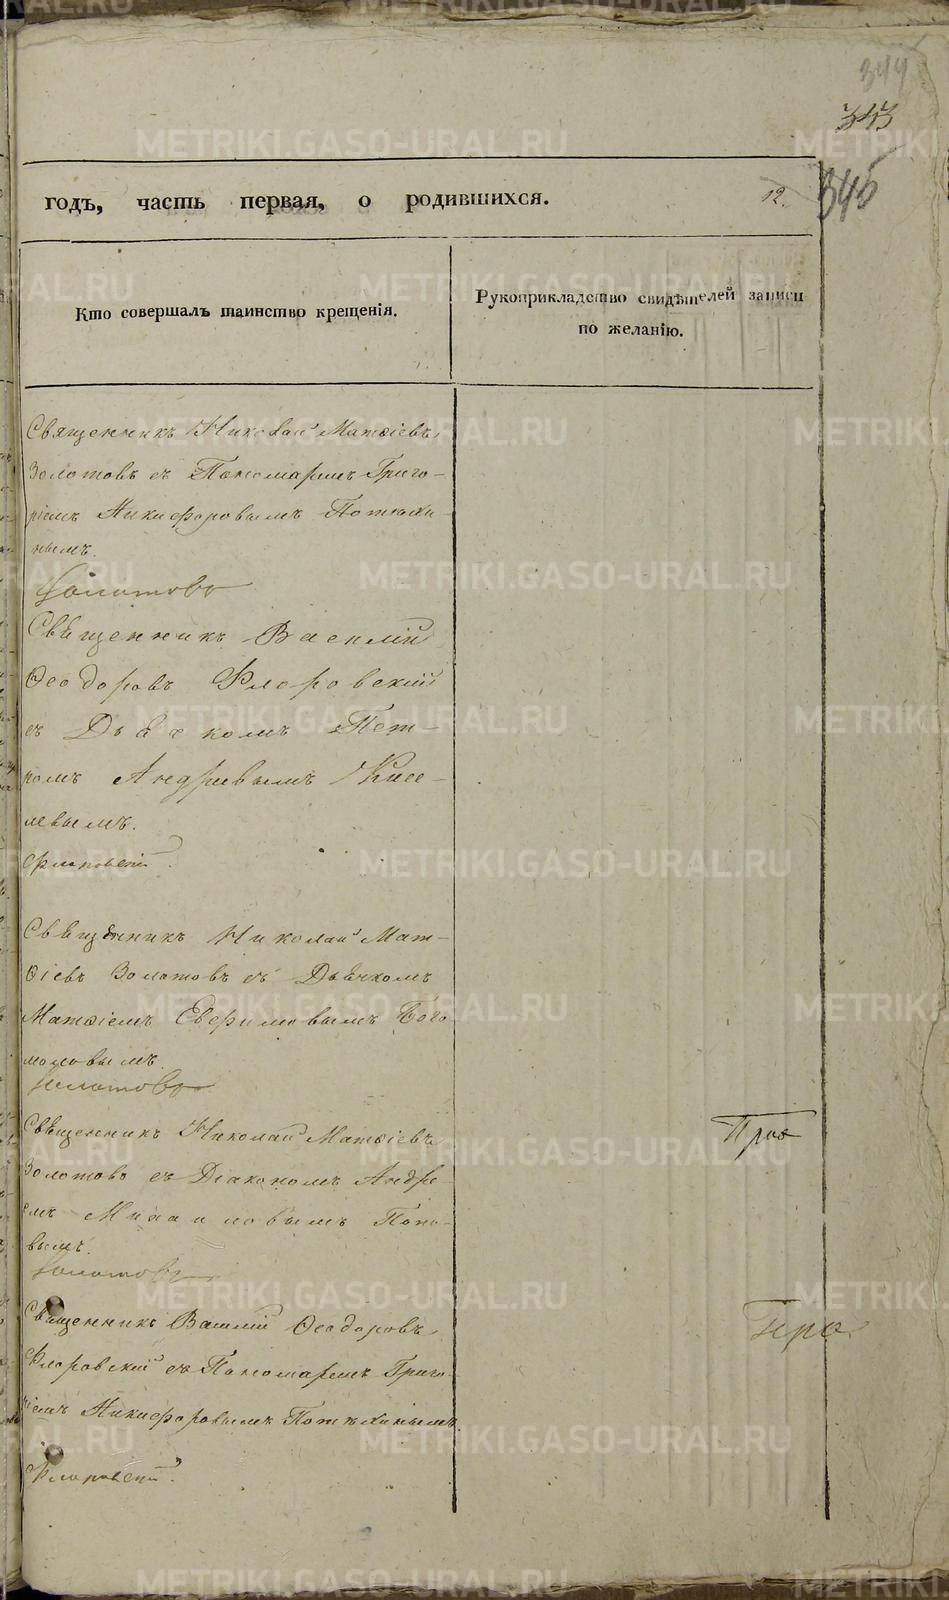 344
343
345
годъ, часть первая, о родившихся.
12.
Кто совершалъ таинство крещенія.
Рукоприкладство свидѣтелей записи
по желанію.
Священникъ Николай Матѳіевъ
Золотовъ съ Пономаремъ Григо-
ріемъ Никифоровымъ Потѣхи-
нымъ.
Золотовъ
Свѣщенникъ Василій
Ѳеодоровъ Флоровскій
съ Дьячкомъ Пет-
ромъ Андріевымъ Кисе-
левымъ.
Флоровскій.
Свѣщенникъ Николай Мат-
ѳіевъ Золотовъ съ Дьячкомъ
Матѳіемъ Ефимовымъ Бого-
моловымъ.
Золотовъ
Свѣщенникъ Николай Матѳіевъ
Золотовъ съ Діакономъ Андре-
емъ Михаиловымъ Попо-
вымъ.
Золотовъ
Свѣщенникъ Василій Ѳеодоровъ
Флоровскій съ Пономаремъ Григо-
ріемъ Никифоровымъ Потѣхинымъ
Флоровскій.
METRIKI.GASO-URAL.RU